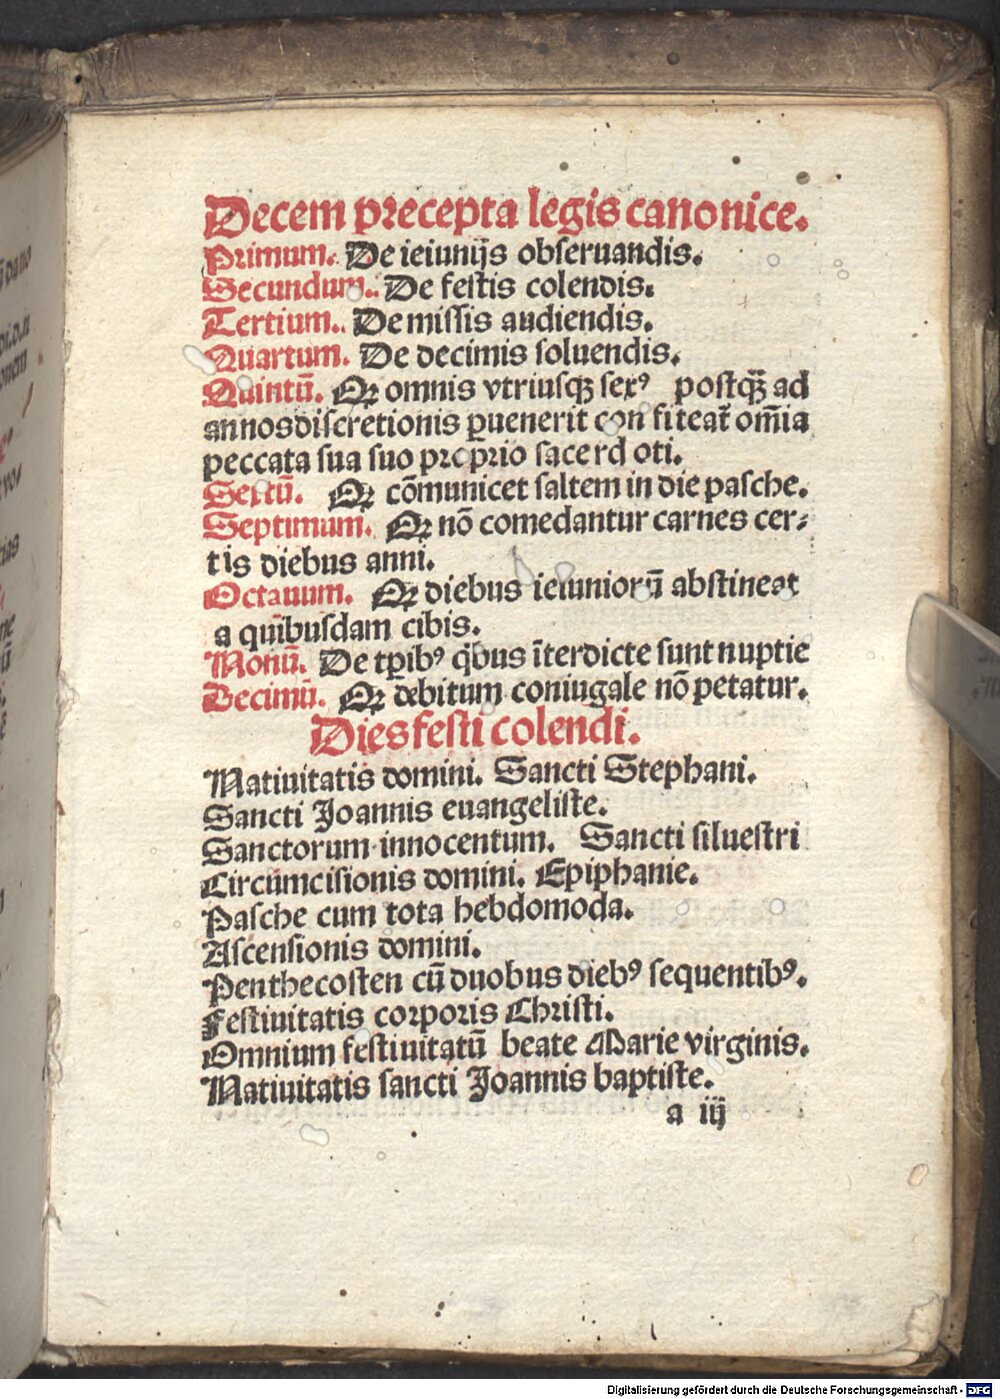 Decem precepta legis canonice.
Primum. De ieiunijs obseruandis.
Secundum. De festis colendis.
Tertium. De missis audiendis.
Quartum. De decimis soluendis.
Quintū. Qꝛ omnis vtriusqꝫ sexꝰ postqꝫ̄ ad
annos discretionis ꝑuenerit confiteat᷑ om̄ia
peccata sua suo proprio sacerdoti.
Sextū. Qꝛ cōmunicet saltem in die pasche.
Septimum. Qꝛ nō comedantur carnes cer⸗
tis diebus anni.
Octauum. Qꝛ diebus ieiuniorū abstineat
a quibusdam cibis.
Nonū. De tꝑibꝰ q̇bus īterdicte sunt nuptie
Decimū. Qꝛ debitum coniugale nō petatur.
Dies festi colendi.
Natiuitatis domini. Sancti Stephani.
Sancti Joannis euangeliste.
Sanctorum innocentum. Sancti siluestri
Circumcisionis domini. Epiphanie.
Pasche cum tota hebdomoda.
Ascensionis domini.
Penthecosten cū duobus diebꝰ sequentibꝰ.
Festiuitatis corporis Christi.
Omnium festiuitatū beate Marie virginis.
Natiuitatis sancti Joannis baptiste.
a iij
Digitalisierung gefördert durch die Deutsche Forschungsgemeinschaft - DFG